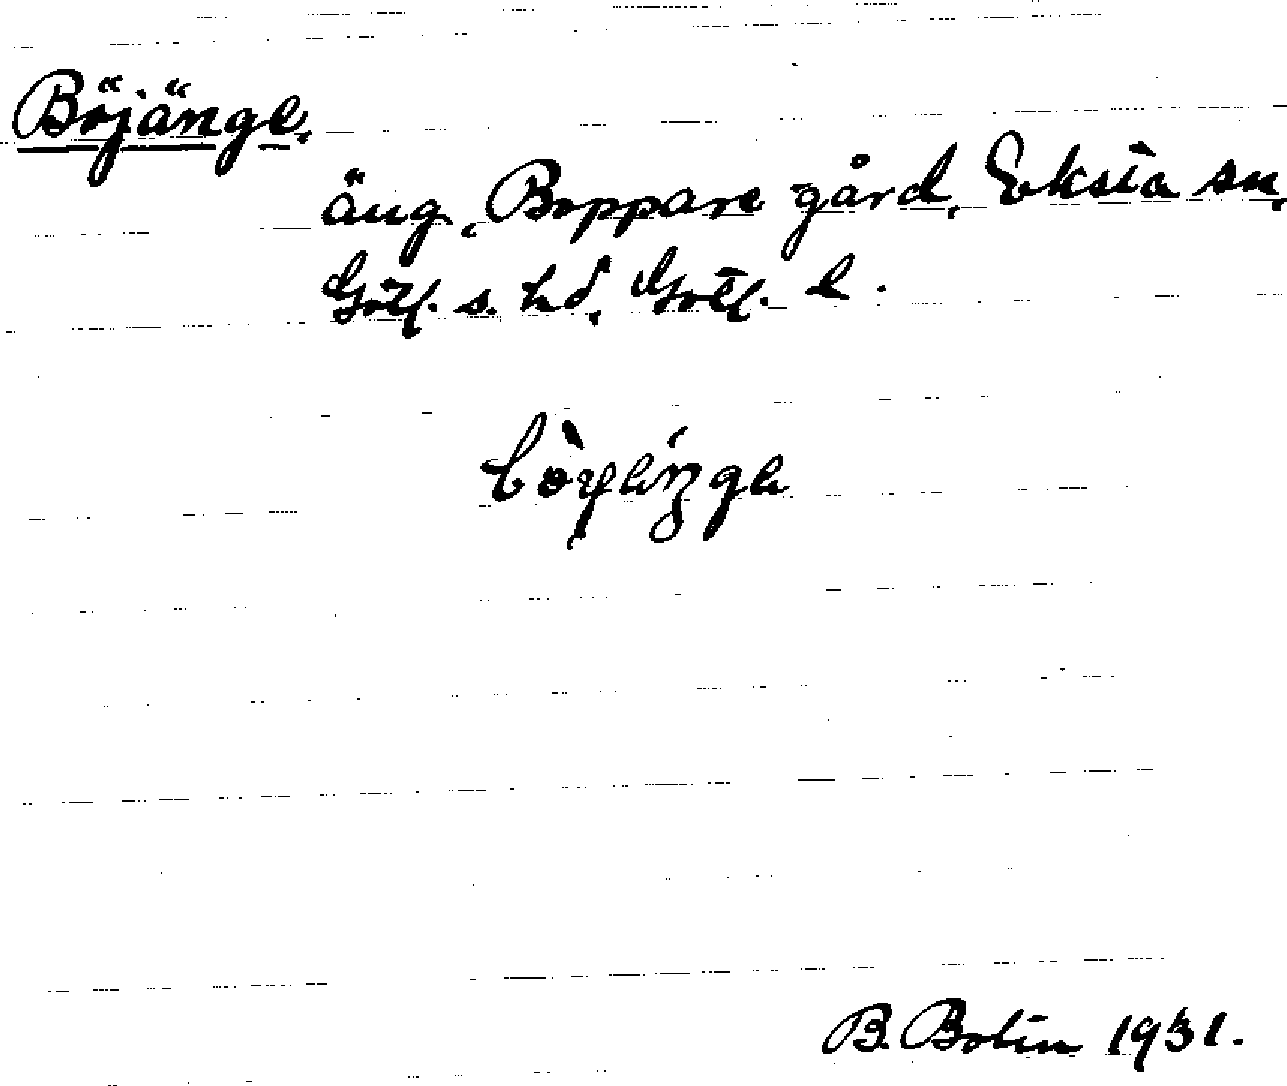 Böjänge.
äng, Boppare gård, Eksta sn,
Gotl. s. hd, Gotl. l.
B. Bolin 1931.